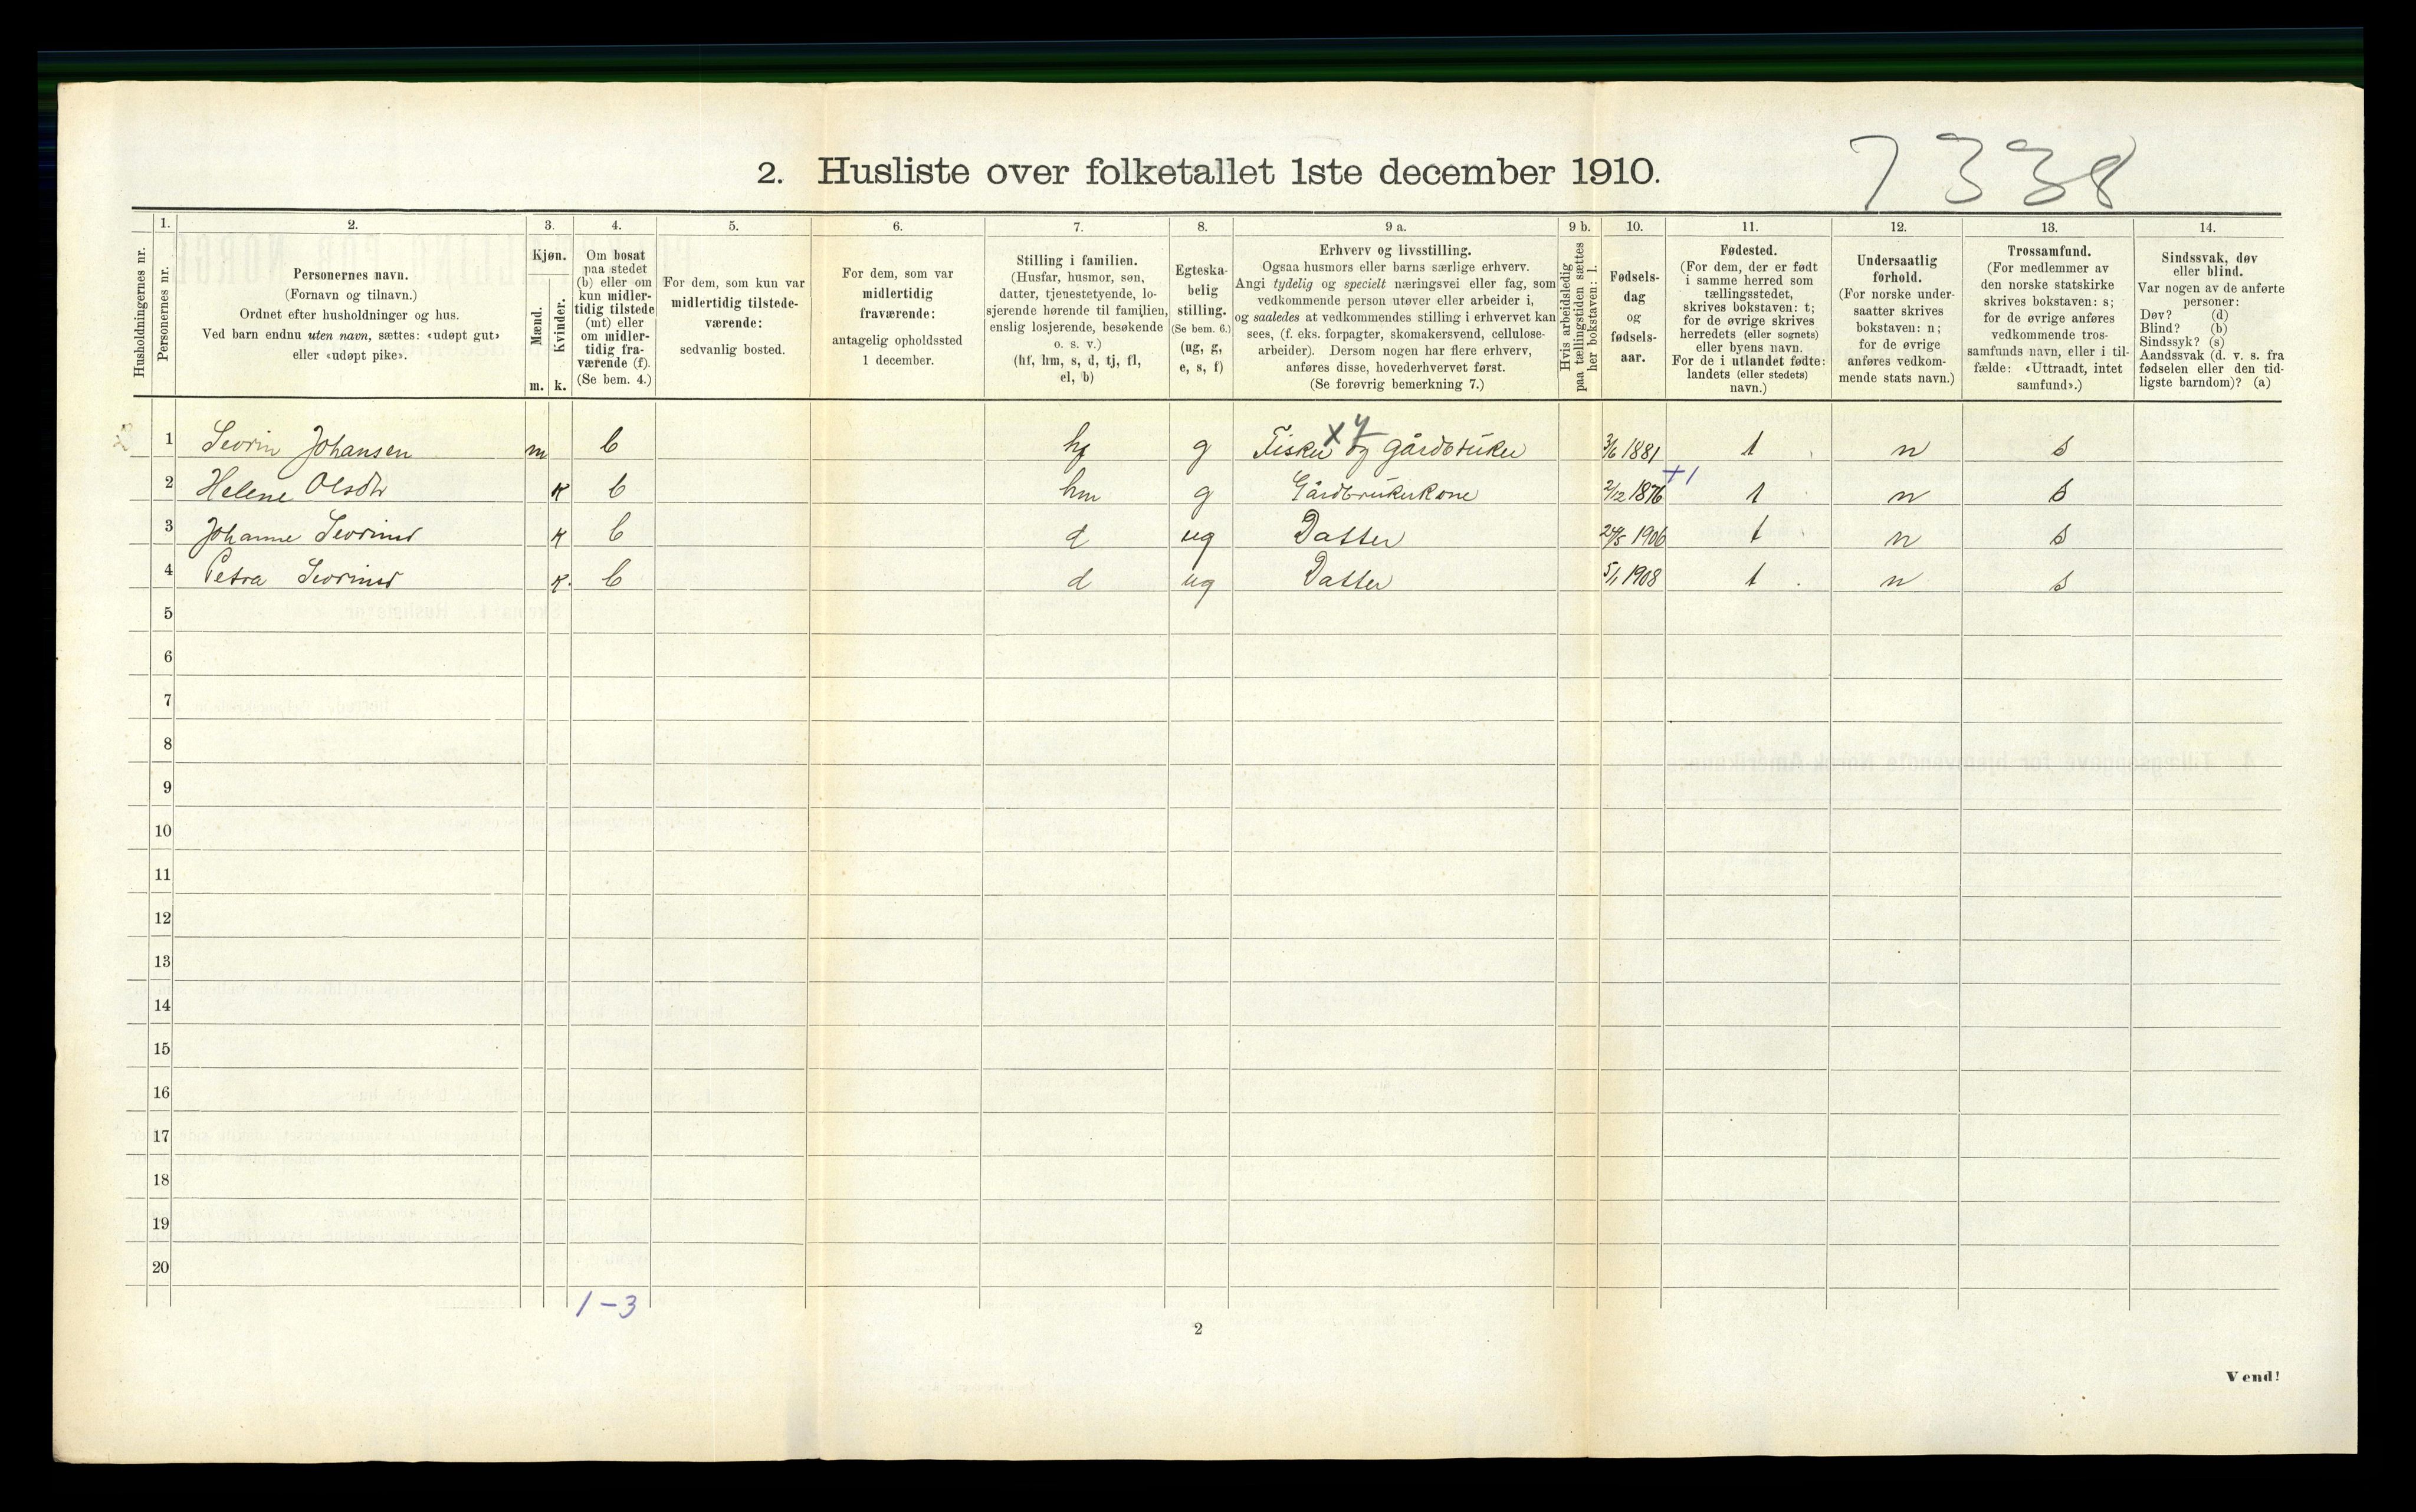 7338
2. Husliste over folketallet 1ste december 1910.
1. 2. 3. 4. 5. 6. 7. 8. 9 a. 9 b. 10. 11. 12. 13. 14.
Husholdningernes nr.
Personernes nr.
Personernes navn.
(Fornavn og tilnavn.)
Ordnet efter husholdninger og hus.
Ved barn endnu uten navn, sættes: «udøpt gut»
eller «udøpt pike».
Kjøn.
Mænd.
Kvinder.
m. k.
Om bosat
paa stedet
(b) eller om
kun midler-
tidig tilstede
(mt) eller
om midler-
tidig fra-
værende (f).
(Se bem. 4.)
For dem, som kun var
midlertidig tilstede-
værende:
sedvanlig bosted.
For dem, som var
midlertidig
fraværende:
antagelig opholdssted
1 december.
Stilling i familien.
(Husfar, husmor, søn,
datter, tjenestetyende, lo-
sjerende hørende til familien,
enslig losjerende, besøkende
o. s. v.)
(hf, hm, s, d, tj, fl,
el, b)
Egteska-
belig
stilling.
(Se bem. 6.)
(ug, g,
e, s, f)
Erhverv og livsstilling.
Ogsaa husmors eller barns særlige erhverv.
Angi tydelig og specielt næringsvei eller fag, som
vedkommende person utøver eller arbeider i,
og saaledes at vedkommendes stilling i erhvervet kan
sees, (f. eks. forpagter, skomakersvend, cellulose-
arbeider). Dersom nogen har flere erhverv,
anføres disse, hovederhvervet først.
(Se forøvrig bemerkning 7.)
Hvis arbeidsledig
paa tællingstiden sættes
her bokstaven: l.
Fødsels-
dag
og
fødsels-
aar.
Fødested.
(For dem, der er født
i samme herred som
tællingsstedet,
skrives bokstaven: t;
for de øvrige skrives
herredets (eller sognets)
eller byens navn.
For de i utlandet fødte:
landets (eller stedets)
navn.)
Undersaatlig
forhold.
(For norske under-
saatter skrives
bokstaven: n;
for de øvrige
anføres vedkom-
mende stats navn.)
Trossamfund.
(For medlemmer av
den norske statskirke
skrives bokstaven: s;
for de øvrige anføres
vedkommende tros-
samfunds navn, eller i til-
fælde: «Uttraadt, intet
samfund».)
Sindssvak, døv
eller blind.
Var nogen av de anførte
personer:
Døv? (d)
Blind? (b)
Sindssyk? (s)
Aandssvak (d. v. s. fra
fødselen eller den tid-
ligste barndom)? (a)
1 Sevrin Johansen m b hf g Fisker og gårdbruker 3/6 1881 t n s
2 Helene Olsdtr k b hm g Gårdbrukerkone 2/12 1876 +1 t n s
3 Johanne Sevrinsd k b d ug Datter 24/5 1906 t n s
4 Petra Sevrinsd k. b d ug Datter 5/1 1908 t n s
5
6
7
8
9
10
11
12
13
14
15
16
17
18
19
20
1-3
2
Vend!